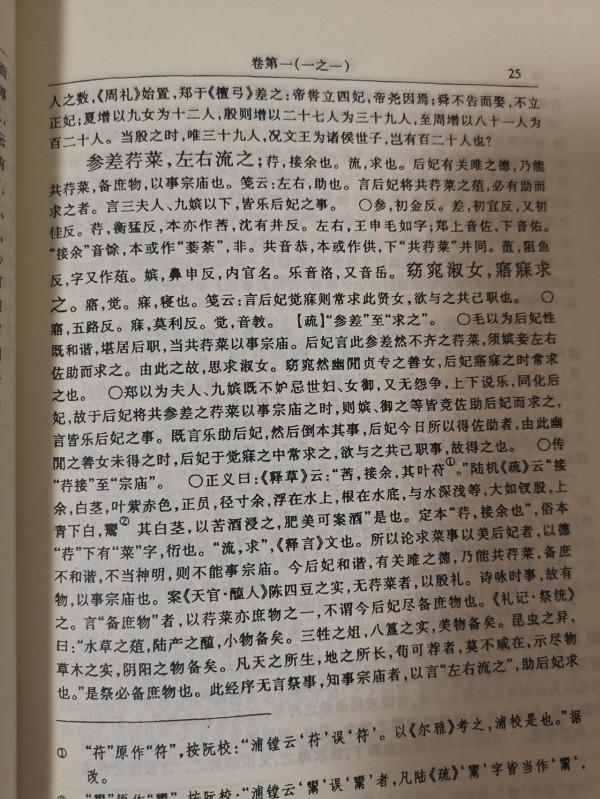 卷第一(一之一)
25
人之数,《周礼》始置,郑于《檀弓》差之:帝喾立四妃,帝尧因焉;舜不告而娶,不立
正妃;夏增以九女为十二人,殷则增以二十七人为三十九人,至周增以八十一人为
百二十人。当殷之时,唯三十九人,况文王为诸侯世子,岂有百二十人也?
参差荇菜,左右流之;荇,接余也。流,求也。后妃有关雎之德,乃能
共荇菜,备庶物,以事宗庙也。笺云:左右,助也。言后妃将共荇菜之葅,必有助而
求之者。言三夫人、九嫔以下,皆乐后妃之事。 ○参,初金反。差,初宜反,又初
佳反。荇,衡猛反,本亦作莕,沈有并反。左右,王申毛如字;郑上音佐,下音佑。
“接余”音馀,本或作“萎荼”,非。共音恭,本或作供,下“共荇菜”并同。葅,阻鱼
反,字又作菹。嫔,鼻申反,内官名。乐音洛,又音岳。窈窕淑女,寤寐求
之。寤,觉。寐,寝也。笺云:言后妃觉寐则常求此贤女,欲与之共己职也。 ○
寤,五路反。寐,莫利反。觉,音教。 【疏】“参差”至“求之”。 ○毛以为后妃性
既和谐,堪居后职,当共荇菜以事宗庙。后妃言此参差然不齐之荇菜,须嫔妾左右
佐助而求之。由此之故,思求淑女。窈窕然幽閒贞专之善女,后妃寤寐之时常求
之也。 ○郑以为夫人、九嫔既不妒忌世妇、女御,又无怨争,上下说乐,同化后
妃,故于后妃将共参差之荇菜以事宗庙之时,则嫔、御之等皆竞佐助后妃而求之,
言皆乐后妃之事。既言乐助后妃,然后倒本其事,后妃今日所以得佐助者,由此幽
閒之善女未得之时,后妃于觉寐之中常求之,欲与之共己职事,故得之也。 ○传
“荇接”至“宗庙”。 ○正义曰:《释草》云:“莕,接余,其叶苻①。”陆机《疏》云“接
余,白茎,叶紫赤色,正员,径寸余,浮在水上,根在水底,与水深浅等,大如钗股,上
青下白,鬻② 其白茎,以苦酒浸之,肥美可案酒”是也。定本“荇,接余也”,俗本
“荇”下有“菜”字,衍也。“流,求”,《释言》文也。所以论求菜事以美后妃者,以德
不和谐,不当神明,则不能事宗庙。今后妃和谐,有关雎之德,乃能共荇菜,备庶
物,以事宗庙也。案《天官·醢人》陈四豆之实,无荇菜者,以殷礼。诗咏时事,故有
之。言“备庶物”者,以荇菜亦庶物之一,不谓今后妃尽备庶物也。《礼记·祭统》
曰:“水草之葅,陆产之醢,小物备矣。三牲之俎,八簋之实,美物备矣。昆虫之异,
草木之实,阴阳之物备矣。凡天之所生,地之所长,苟可荐者,莫不咸在,示尽物
也。”是祭必备庶物也。此经序无言祭事,知事宗庙者,以言“左右流之”,助后妃求
① “苻”原作“符”,按阮校:“浦镗云‘苻’误‘符’。以《尔雅》考之,浦校是也。”据
改。
② “鬻”原作“䰞”,按阮校:“浦镗云‘鬻’误‘䰞’者,凡陆《疏》‘鬻’字皆当作‘䰞’,